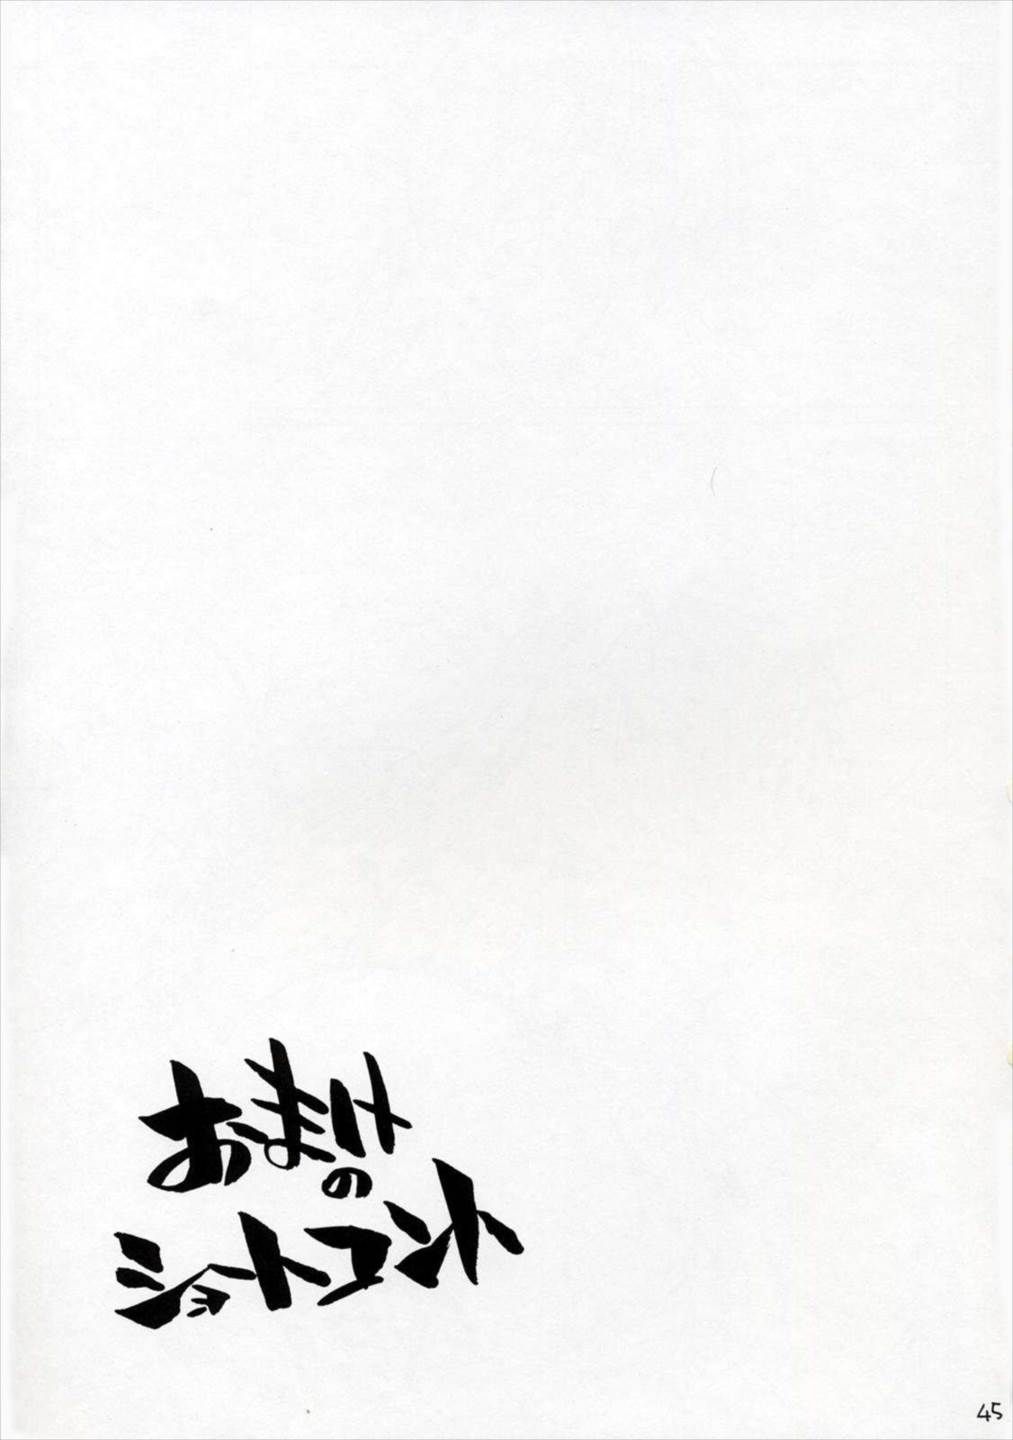 おまけの
ショートコント
45